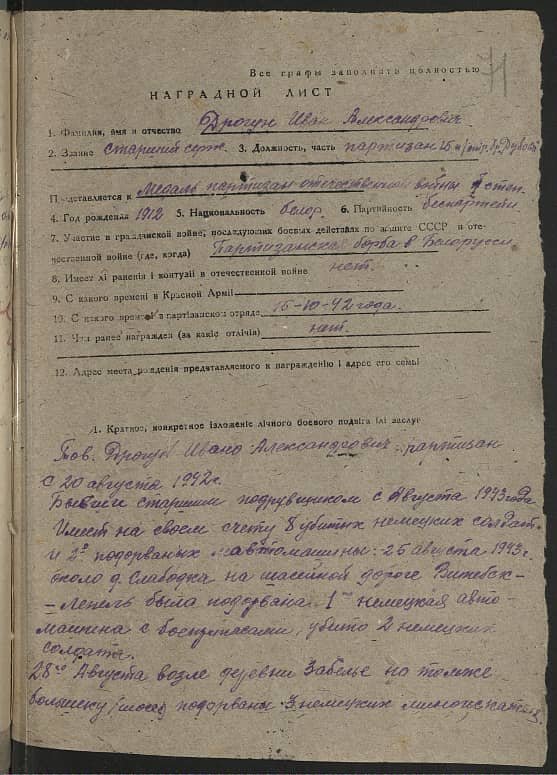 71
Все графы заполнять полностью
НАГРАДНОЙ ЛИСТ
1. Фамилия, имя и отчество Дрогун Иван Александрович
2. Звание старший серж. 3. Должность, часть партизан
Представляется к Медаль партизан отечественной войны степ.
4. Год рождения 1912 5. Национальность белор. 6. Партийность беспартейн
7. Участие в гражданской войне, последующих боевых действах по защите СССР и оте-
чественной войне (где, когда) Партизанская борба в Белорусси
8. Имеет лі раненія і контузіі в отечественной войне нет.
9. С какого времені в Красной Арміі
10. С какого времені в партізанском отряде 15-10-42 года.
11. Чем ранее награжден (за какіе отлічія) нет.
12. Адрес места рожденія представляемого к награжденію і адрес его семьі
1. Краткое, конкретное ізложеніе лічного боевого подвіга ілі заслуг
Тов. Дрогун Ивано Александрович партизан
с 20 августа 1942г.
Бывши старшим подрувщиком с Августа 1943 года
Имеет на своем счету 8 убитых немецких солдат
и 2е подорваных автомашины: 25 августа 1943г.
около д. Слабодка на шасейной дороге Витебск-
-Лепель была подорвана 1 немецкая авто-
машина с боеприпасами, убито 2 немецких
солдата.
28го Августа возле деревни Забелье на томже
большеку подорваны 3 немецких